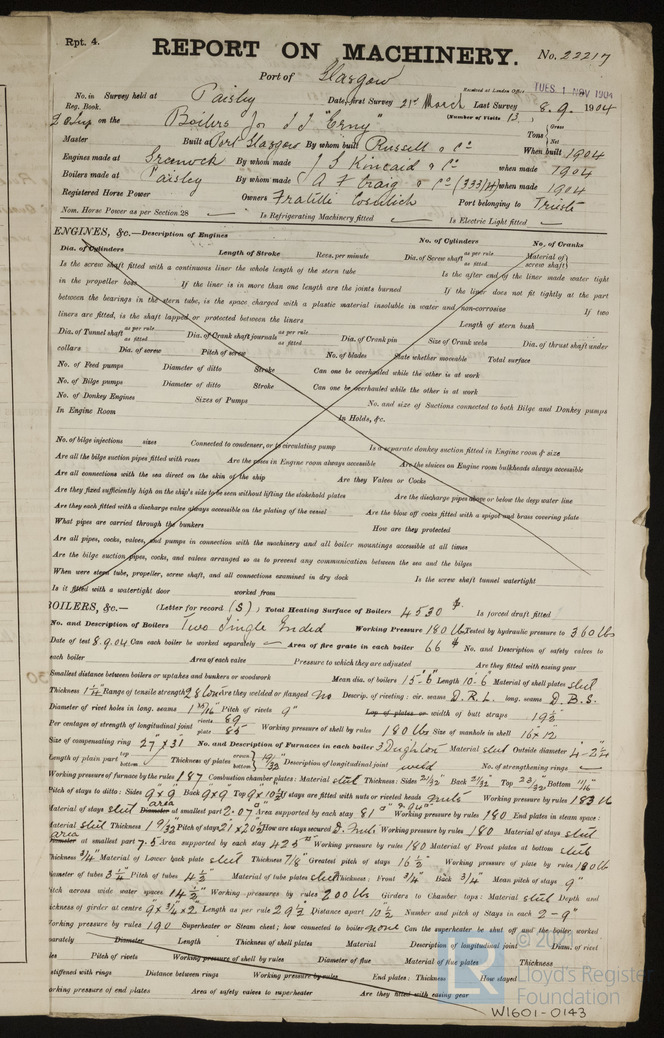 Rpt. 4.
REPORT ON MACHINERY.
No. 22217
Port of Glasgow
Received at London Office TUES. 1 NOV 1904
No. in Survey held at Paisley Date, first Survey 21st March Last Survey 8.9. 1904
Reg. Book.
(Number of Visits 13.)
on the Boilers for S.S. "Erny"
Tons { Gross
Net
When built 1904
Master Built at Port Glasgow By whom built Russell & Co
Engines made at Greenock By whom made J G Kincaid & Co when made 1904
Boilers made at Paisley By whom made A F Craig & Co (333/14) when made 1904
Registered Horse Power Owners Fratelli Cosulich Port belonging to Trieste
Nom. Horse Power as per Section 28 Is Refrigerating Machinery fitted Is Electric Light fitted
ENGINES, &c.—Description of Engines No. of Cylinders No. of Cranks
Dia. of Cylinders Length of Stroke Revs. per minute Dia. of Screw shaft as per rule as fitted Material of screw shaft
Is the screw shaft fitted with a continuous liner the whole length of the stern tube Is the after end of the liner made water tight
in the propeller boss If the liner is in more than one length are the joints burned If the liner does not fit tightly at the part
between the bearings in the stern tube, is the space charged with a plastic material insoluble in water and non-corrosive If two
liners are fitted, is the shaft lapped or protected between the liners Length of stern bush
Dia. of Tunnel shaft as per rule as fitted Dia. of Crank shaft journals as per rule as fitted Dia. of Crank pin Size of Crank webs Dia. of thrust shaft under
collars Dia. of screw Pitch of screw No. of blades State whether moveable Total surface
No. of Feed pumps Diameter of ditto Stroke Can one be overhauled while the other is at work
No. of Bilge pumps Diameter of ditto Stroke Can one be overhauled while the other is at work
No. of Donkey Engines Sizes of Pumps No. and size of Suctions connected to both Bilge and Donkey pumps
In Engine Room In Holds, &c.
No. of bilge injections sizes Connected to condenser, or to circulating pump Is a separate donkey suction fitted in Engine room & size
Are all the bilge suction pipes fitted with roses Are the roses in Engine room always accessible Are the sluices on Engine room bulkheads always accessible
Are all connections with the sea direct on the skin of the ship Are they Valves or Cocks
Are they fixed sufficiently high on the ship's side to be seen without lifting the stokehold plates Are the discharge pipes above or below the deep water line
Are they each fitted with a discharge valve always accessible on the plating of the vessel Are the blow off cocks fitted with a spigot and brass covering plate
What pipes are carried through the bunkers How are they protected
Are all pipes, cocks, valves, and pumps in connection with the machinery and all boiler mountings accessible at all times
Are the bilge suction pipes, cocks, and valves arranged so as to prevent any communication between the sea and the bilges
When were stern tube, propeller, screw shaft, and all connections examined in dry dock Is the screw shaft tunnel watertight
Is it fitted with a watertight door worked from
BOILERS, &c.— (Letter for record (S)) Total Heating Surface of Boilers 4530 Is forced draft fitted
No. and Description of Boilers Two Single Ended Working Pressure 180 lbs Tested by hydraulic pressure to 360 lbs
Date of test 8.9.04 Can each boiler be worked separately Area of fire grate in each boiler 66 No. and Description of safety valves to
each boiler Area of each valve Pressure to which they are adjusted Are they fitted with easing gear
Smallest distance between boilers or uptakes and bunkers or woodwork Mean dia. of boilers 15'-6" Length 10-6 Material of shell plates steel
Thickness Range of tensile strength Are they welded or flanged no Descrip. of riveting: cir. seams D.R.L. long. seams D.B.S.
Diameter of rivet holes in long. seams Pitch of rivets 9" Lap of plates or width of butt straps
Per centages of strength of longitudinal joint rivets 89 plate 85 Working pressure of shell by rules 180 lbs Size of manhole in shell 16 x 12
Size of compensating ring 27" x 31 No. and Description of Furnaces in each boiler 3 Deighton Material steel Outside diameter
Length of plain part top bottom Thickness of plates crown bottom 19/32 Description of longitudinal joint weld No. of strengthening rings
Working pressure of furnace by the rules 187 Combustion chamber plates: Material steel Thickness: Sides 21/32 Back 21/32 Top 23/32 Bottom 11/16
Pitch of stays to ditto: Sides 9" x 9 Back 9 x 9 Top If stays are fitted with nuts or riveted heads nuts Working pressure by rules 183 lb
Material of stays steel area Diameter at smallest part 2.07 Area supported by each stay 81 Working pressure by rules 180 End plates in steam space:
Material steel Thickness 1 9/32 Pitch of stays How are stays secured D. Nuts Working pressure by rules 180 Material of stays steel
area Diameter at smallest part 7.5 Area supported by each stay 425 Working pressure by rules 180 Material of Front plates at bottom steel
Thickness 3/4" Material of Lower back plate steel Thickness 7/8" Greatest pitch of stays Working pressure of plate by rules 180 lb
Diameter of tubes 3 1/4 Pitch of tubes 4 1/2 Material of tube plates steel Thickness: Front 3/4" Back 3/4" Mean pitch of stays 9"
Pitch across wide water spaces 14 1/2" Working pressures by rules 200 lbs Girders to Chamber tops: Material steel Depth and
thickness of girder at centre Length as per rule 29 1/2 Distance apart 10 1/2 Number and pitch of Stays in each 2 - 9"
Working pressure by rules 190 Superheater or Steam chest; how connected to boiler none Can the superheater be shut off and the boiler worked
separately Diameter Length Thickness of shell plates Material Description of longitudinal joint Diam. of rivet
holes Pitch of rivets Working pressure of shell by rules Diameter of flue Material of flue plates Thickness
If stiffened with rings Distance between rings Working pressure by rules End plates: Thickness How stayed
Working pressure of end plates Area of safety valves to superheater Are they fitted with easing gear
Lloyd's Register
Foundation
W1601-0143